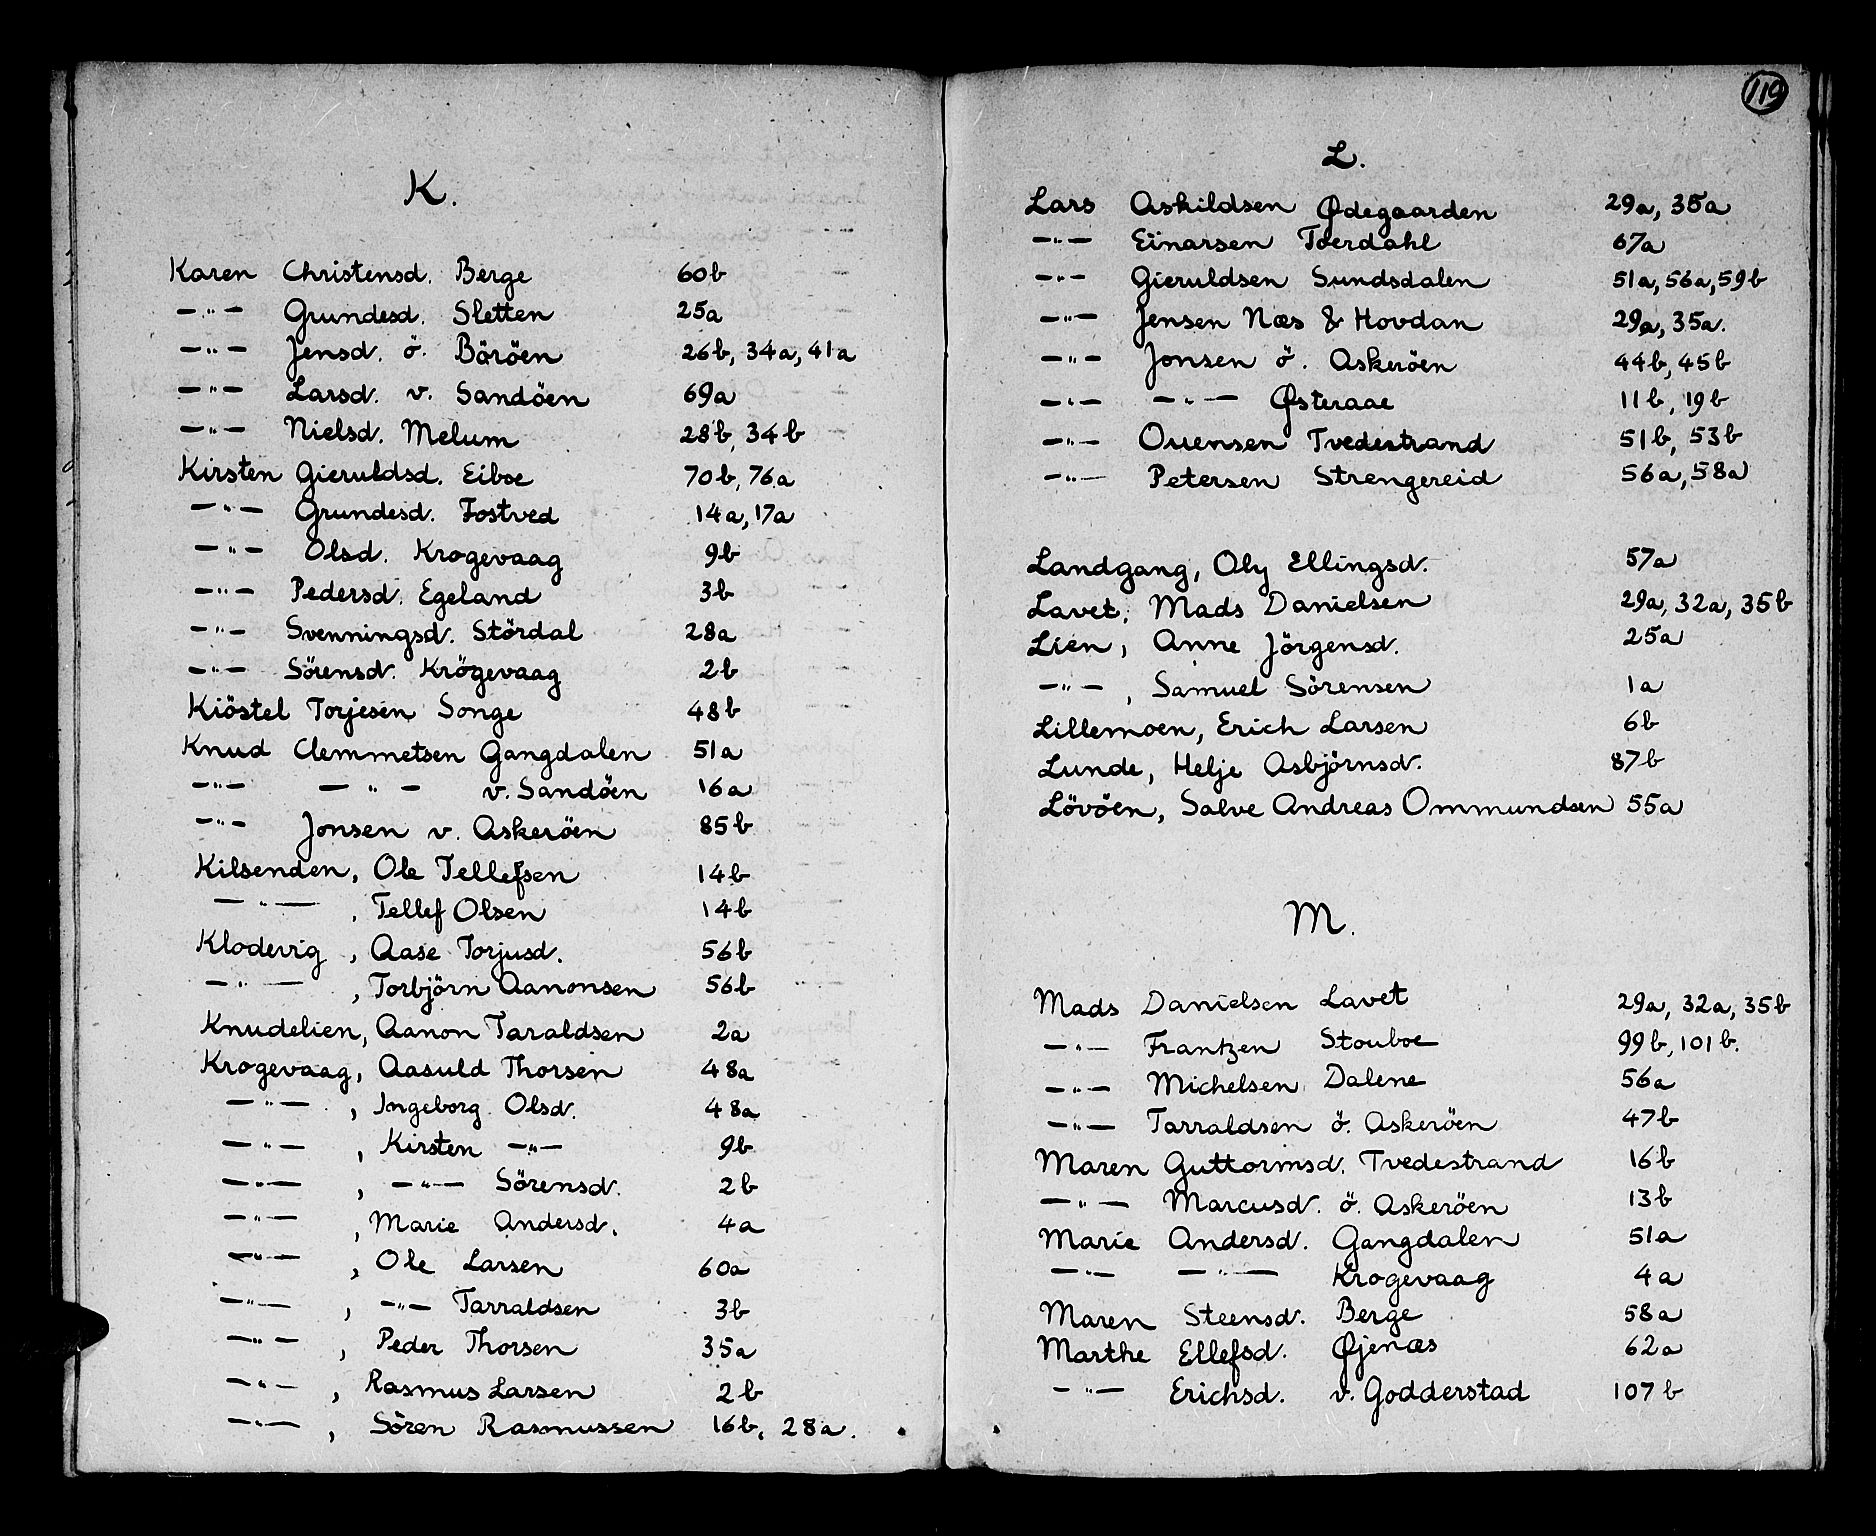 K.
Karen Christensd. Berge 60b
—"— Grundesd. Sletten 25a
—"— Jensd. ö. Böröen 26b, 34a, 41a
—"— Larsd. v. Sandöen 69a
—"— Nielsd. Melum 28b, 34b
Kirsten Gieruldsd. Eiboe 70b, 76a
—"— Grundesd. Fostved 14a, 17a
—"— Olsd. Krogevaag 9b
—"— Pedersd. Egeland 3b
—"— Svenningsd. Stördal 28a
—"— Sörensd. Krögevaag 2b
Kiöstel Torjesen Songe 48b
Knud Clemmetsen Gangdalen 51a
—"— —"— v. Sandöen 16a
—"— Jonsen v. Askeröen 85b
Kilsenden, Ole Tellefsen 14b
—"— , Tellef Olsen 14b
Klodevig , Aase Torjusd. 56b
—"— , Torbjörn Aanonsen 56b
Knudelien, Aanon Taraldsen 2a
Krogevaag, Aasuld Thorsen 48a
—"— , Ingeborg Olsd. 48a
—"— , Kirsten —"— 9b
—"— , —"— Sörensd. 2b
—"— , Marie Andersd. 4a
—"— , Ole Larsen 60a
—"— , —"— Tarraldsen 3b
—"— , Peder Thorsen 35a
—"— , Rasmus Larsen 2b
—"— , Sören Rasmussen 16b, 28a.
119
L.
Lars Askildsen Ødegaarden 29a, 35a
—"— Einarsen Toerdahl 67a
—"— Gieruldsen Sundsdalen 51a, 56a, 59b
—"— Jensen Næs & Hovdan 29a, 35a.
—"— Jonsen ö. Askeröen 44b, 45b
—"— —"— Østeraae 11b, 19b
—"— Ouensen Tvedestrand 51b, 53b
—"— Petersen Strengereid 56a, 58a
Landgang, Oly Ellingsd. 57a
Lavet, Mads Danielsen 29a, 32a, 35b
Lien, Anne Jörgensd. 25a
—"— , Samuel Sörensen 1a
Lillemoen, Erich Larsen 6b
Lunde, Helje Asbjörnsd. 87b
Lövöen, Salve Andreas Ommundsen 55a
M.
Mads Danielsen Lavet 29a, 32a, 35b
—"— Frantzen Stouboe 99b, 101b.
—"— Michelsen Dalene 56a
—"— Tarraldsen ö. Askeröen 47b
Maren Guttormsd. Tvedestrand 16b
—"— Marcusd. ö. Askeröen 13b
Marie Andersd. Gangdalen 51a
—"— —"— Krogevaag 4a
Maren Steensd. Berge 58a
Marthe Ellefsd. Øjenæs 62a
—"— Erichsd. v. Godderstad 107b